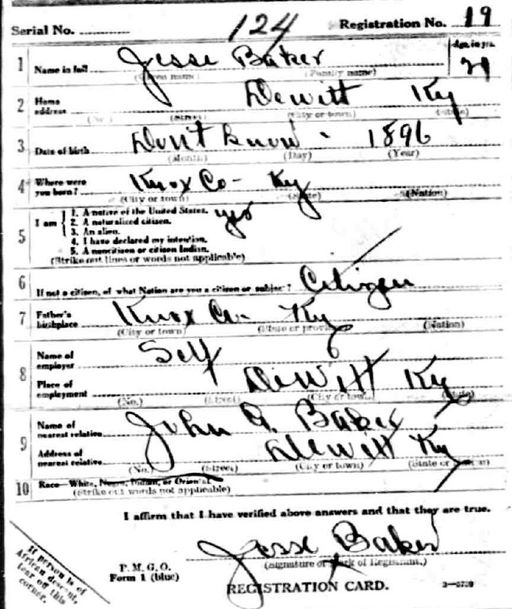 Serial No. 124 Registration No. 19
1 Name in full Jesse Baker Age, in yrs.
(Given name) (Family name) 21
2 Home address Dewitt Ky
(No.) (Street) (City or town) (State)
3 Date of birth Don't know - 1896
(Month) (Day) (Year)
4 Where were you born? Knox Co - Ky
(City or town) (State) (Nation)
5 I am 1. A native of the United States. yes
2. A naturalized citizen.
3. An alien.
4. I have declared my intention.
5. A noncitizen or citizen Indian.
(Strike out lines or words not applicable)
6 If not a citizen, of what Nation are you a citizen or subject? Citizen
7 Father's birthplace Knox Co - Ky
(City or town) (State or province) (Nation)
8 Name of employer Self
Place of employment Dewitt Ky
(No.) (Street) (City or town) (State)
9 Name of nearest relative John G. Baker
Address of nearest relative Dewitt Ky
(No.) (Street) (City or town) (State or Nation)
10 Race—White, Negro, Indian, or Oriental
(Strike out words not applicable)
I affirm that I have verified above answers and that they are true.
Jesse Baker
P. M. G. O.
Form 1 (blue) (Signature or mark of Registrant.)
REGISTRATION CARD.
If person is of
African descent,
tear off this
corner.